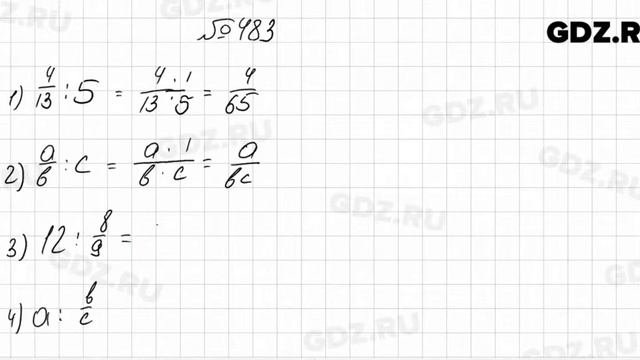 №483
GDZ.R
1) 4/13 : 5 = 4·1/13·5 = 4/65
2) a/b : c = a·1/b·c = a/bc
3) 12 : 8/9 =
4) a : b/c
GDZ.RU
GDZ.RU
GDZ.RU
GDZ.RU
GDZ.RU
GDZ.RU
GDZ.RU